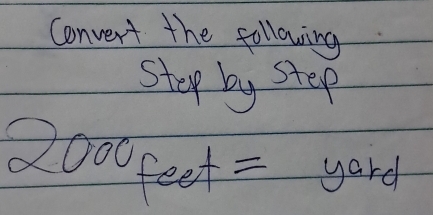 Convert the following
Step by Step
2000 feet = yard